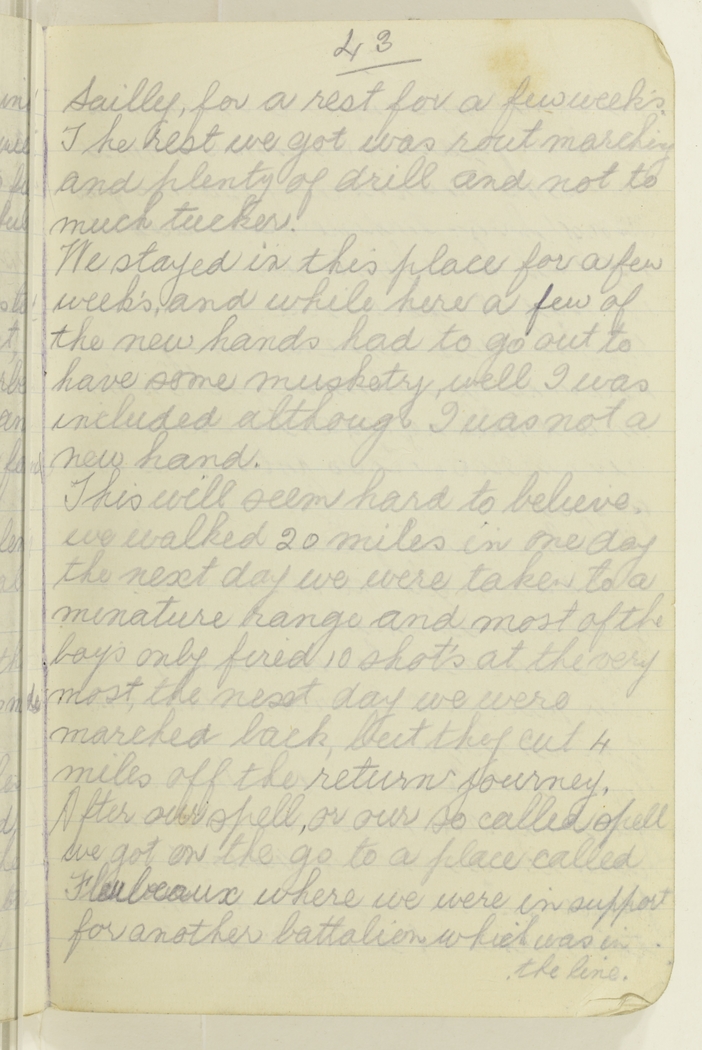 43
Sailly, for a rest for a few week's.
The rest we got was rout marching
and plenty of drill and not to
much tucker!
We stayed in this place for a few
week's, and while here a few of
the new hands had to go out to
have some musketry, well I was
included althoug I was not a
new hand.
This will seem hard to believe.
we walked 20 miles in one day
the next day we were taken to a
minature range and most of the
boys only fired 10 shot's at the very
most, the next day we were
marched back, but they cut 4
miles off the return journey.
After our spell, or our so called spell
we got on the go to a place called
Fleubeaux where we were in support
for another battalion which was in
the line.